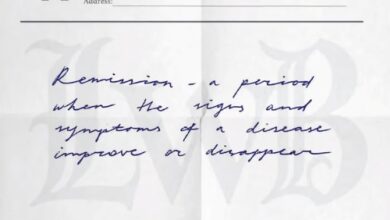 Address:
Remission - a period
when the signs and
symptoms of a disease
improve or disappear